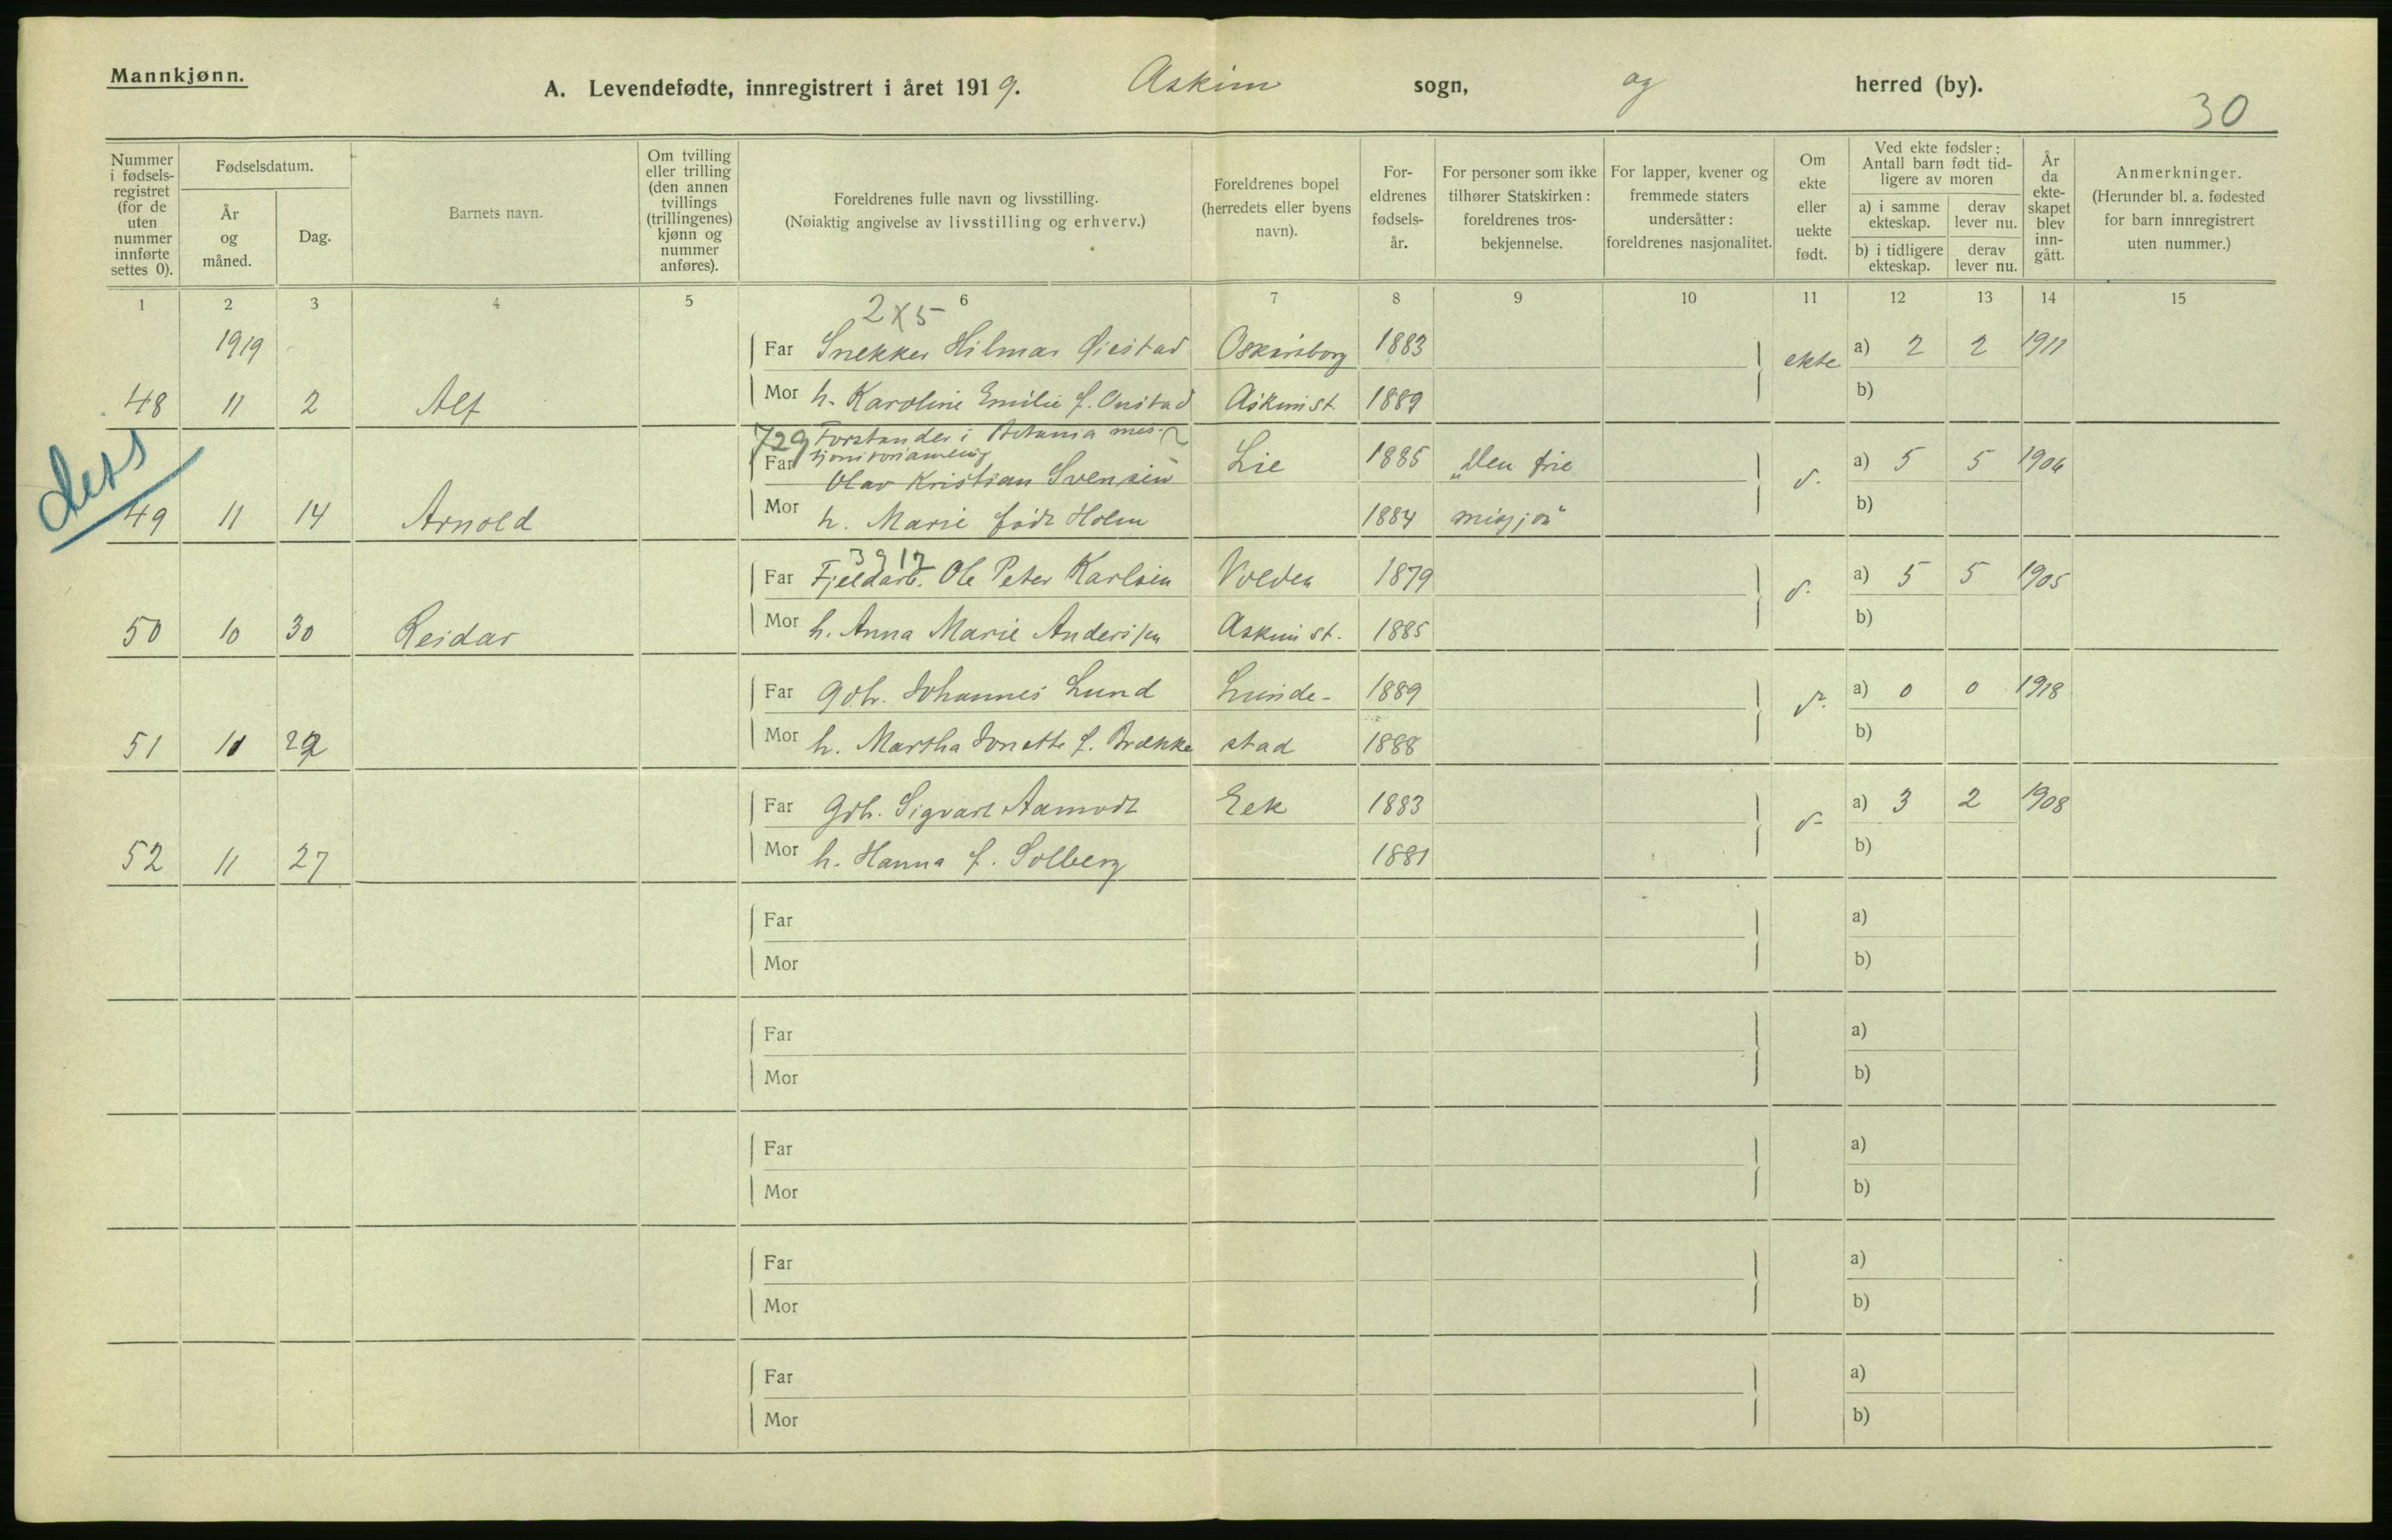 Mannkjønn.
A. Levendefødte, innregistrert i året 1919. Askim sogn, og herred (by).
30
Nummer i fødsels-registret (for de uten nummer innførte settes 0).
Fødselsdatum.
År og måned.
Dag.
Barnets navn.
Om tvilling eller trilling (den annen tvillings (trillingenes) kjønn og nummer anføres).
Foreldrenes fulle navn og livsstilling.
(Nøiaktig angivelse av livsstilling og erhverv.)
Foreldrenes bopel (herredets eller byens navn).
For-eldrenes fødsels-år.
For personer som ikke tilhører Statskirken: foreldrenes tros-bekjennelse.
For lapper, kvener og fremmede staters undersåtter: foreldrenes nasjonalitet.
Om ekte eller uekte født.
Ved ekte fødsler: Antall barn født tid-ligere av moren
a) i samme ekteskap.
derav lever nu.
b) i tidligere ekteskap.
derav lever nu.
År da ekte-skapet blev inn-gått.
Anmerkninger.
(Herunder bl. a. fødested for barn innregistrert uten nummer.)
1 2 3 4 5 6 7 8 9 10 11 12 13 14 15
2 X 5
1919 Far Snekker Hilmar Øiestad Oskarsborg 1883 ekte a) 2 2 1911
48 11 2 Alf Mor h. Karoline Emilie f. Onstad Askim st. 1889 b)
729 Forstander i Betania mis-
sjonsforsamling
Far Olav Kristian Svensen Lie 1885 "Den frie d. a) 5 5 1906
ders
49 11 14 Arnold Mor h. Marie født Holm 1884 misjon" b)
3917
Far Fjeldarb. Ole Peter Karlsen Volden 1879 d. a) 5 5 1905
50 10 30 Reidar Mor h. Anna Marie Andersen Askim st. 1885 b)
Far Gdbr. Johannes Lund Lunde- 1889 d. a) 0 0 1918
51 11 22 Mor h. Martha Jonette f. Brekke stad 1888 b)
Far Gdbr. Sigvart Aamodt Eek 1883 d. a) 3 2 1908
52 11 27 Mor h. Hanna f. Solberg 1881 b)
Far a)
Mor b)
Far a)
Mor b)
Far a)
Mor b)
Far a)
Mor b)
Far a)
Mor b)